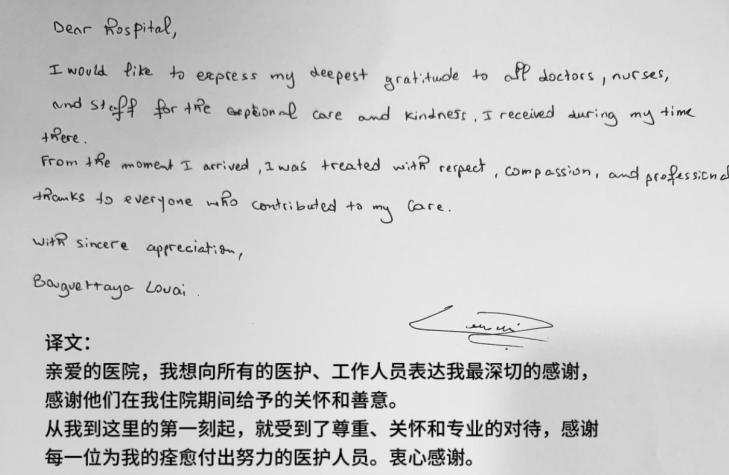 Dear Hospital,
I would like to express my deepest gratitude to all doctors, nurses,
and staff for the exptional care and kindness, I received during my time
there.
From the moment I arrived, I was treated with respect, compassion, and professional
thanks to everyone who contributed to my care.
With sincere appreciation,
Bouguettaya Louai.
译文:
亲爱的医院，我想向所有的医护、工作人员表达我最深切的感谢，
感谢他们在我住院期间给予的关怀和善意。
从我到这里的第一刻起，就受到了尊重、关怀和专业的对待，感谢
每一位为我的痊愈付出努力的医护人员。衷心感谢。